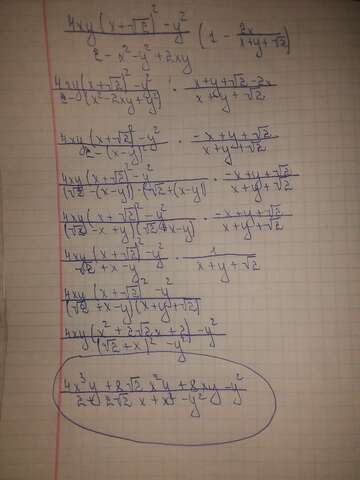 4xy(x+√2)² - y² / 2 - x² - y² + 2xy (1 - 2x / x+y+√2)
4xy(x+√2)² - y² / 2 - (x² - 2xy + y²) · x+y+√2-2x / x+y+√2
4xy(x+√2)² - y² / 2 - (x-y)² · -x+y+√2 / x+y+√2
4xy(x+√2)² - y² / (√2 - (x-y)) · (√2 + (x-y)) · -x+y+√2 / x+y+√2
4xy(x+√2)² - y² / (√2 - x + y)(√2 + x - y) · -x+y+√2 / x+y+√2
4xy(x+√2)² - y² / √2 + x - y · 1 / x+y+√2
4xy(x+√2)² - y² / (√2 + x - y)(x + y + √2)
4xy(x² + 2√2x + 2) - y² / (√2 + x)² - y²
4x³y + 8√2 x²y + 8xy - y² / 2 + 2√2 x + x² - y²